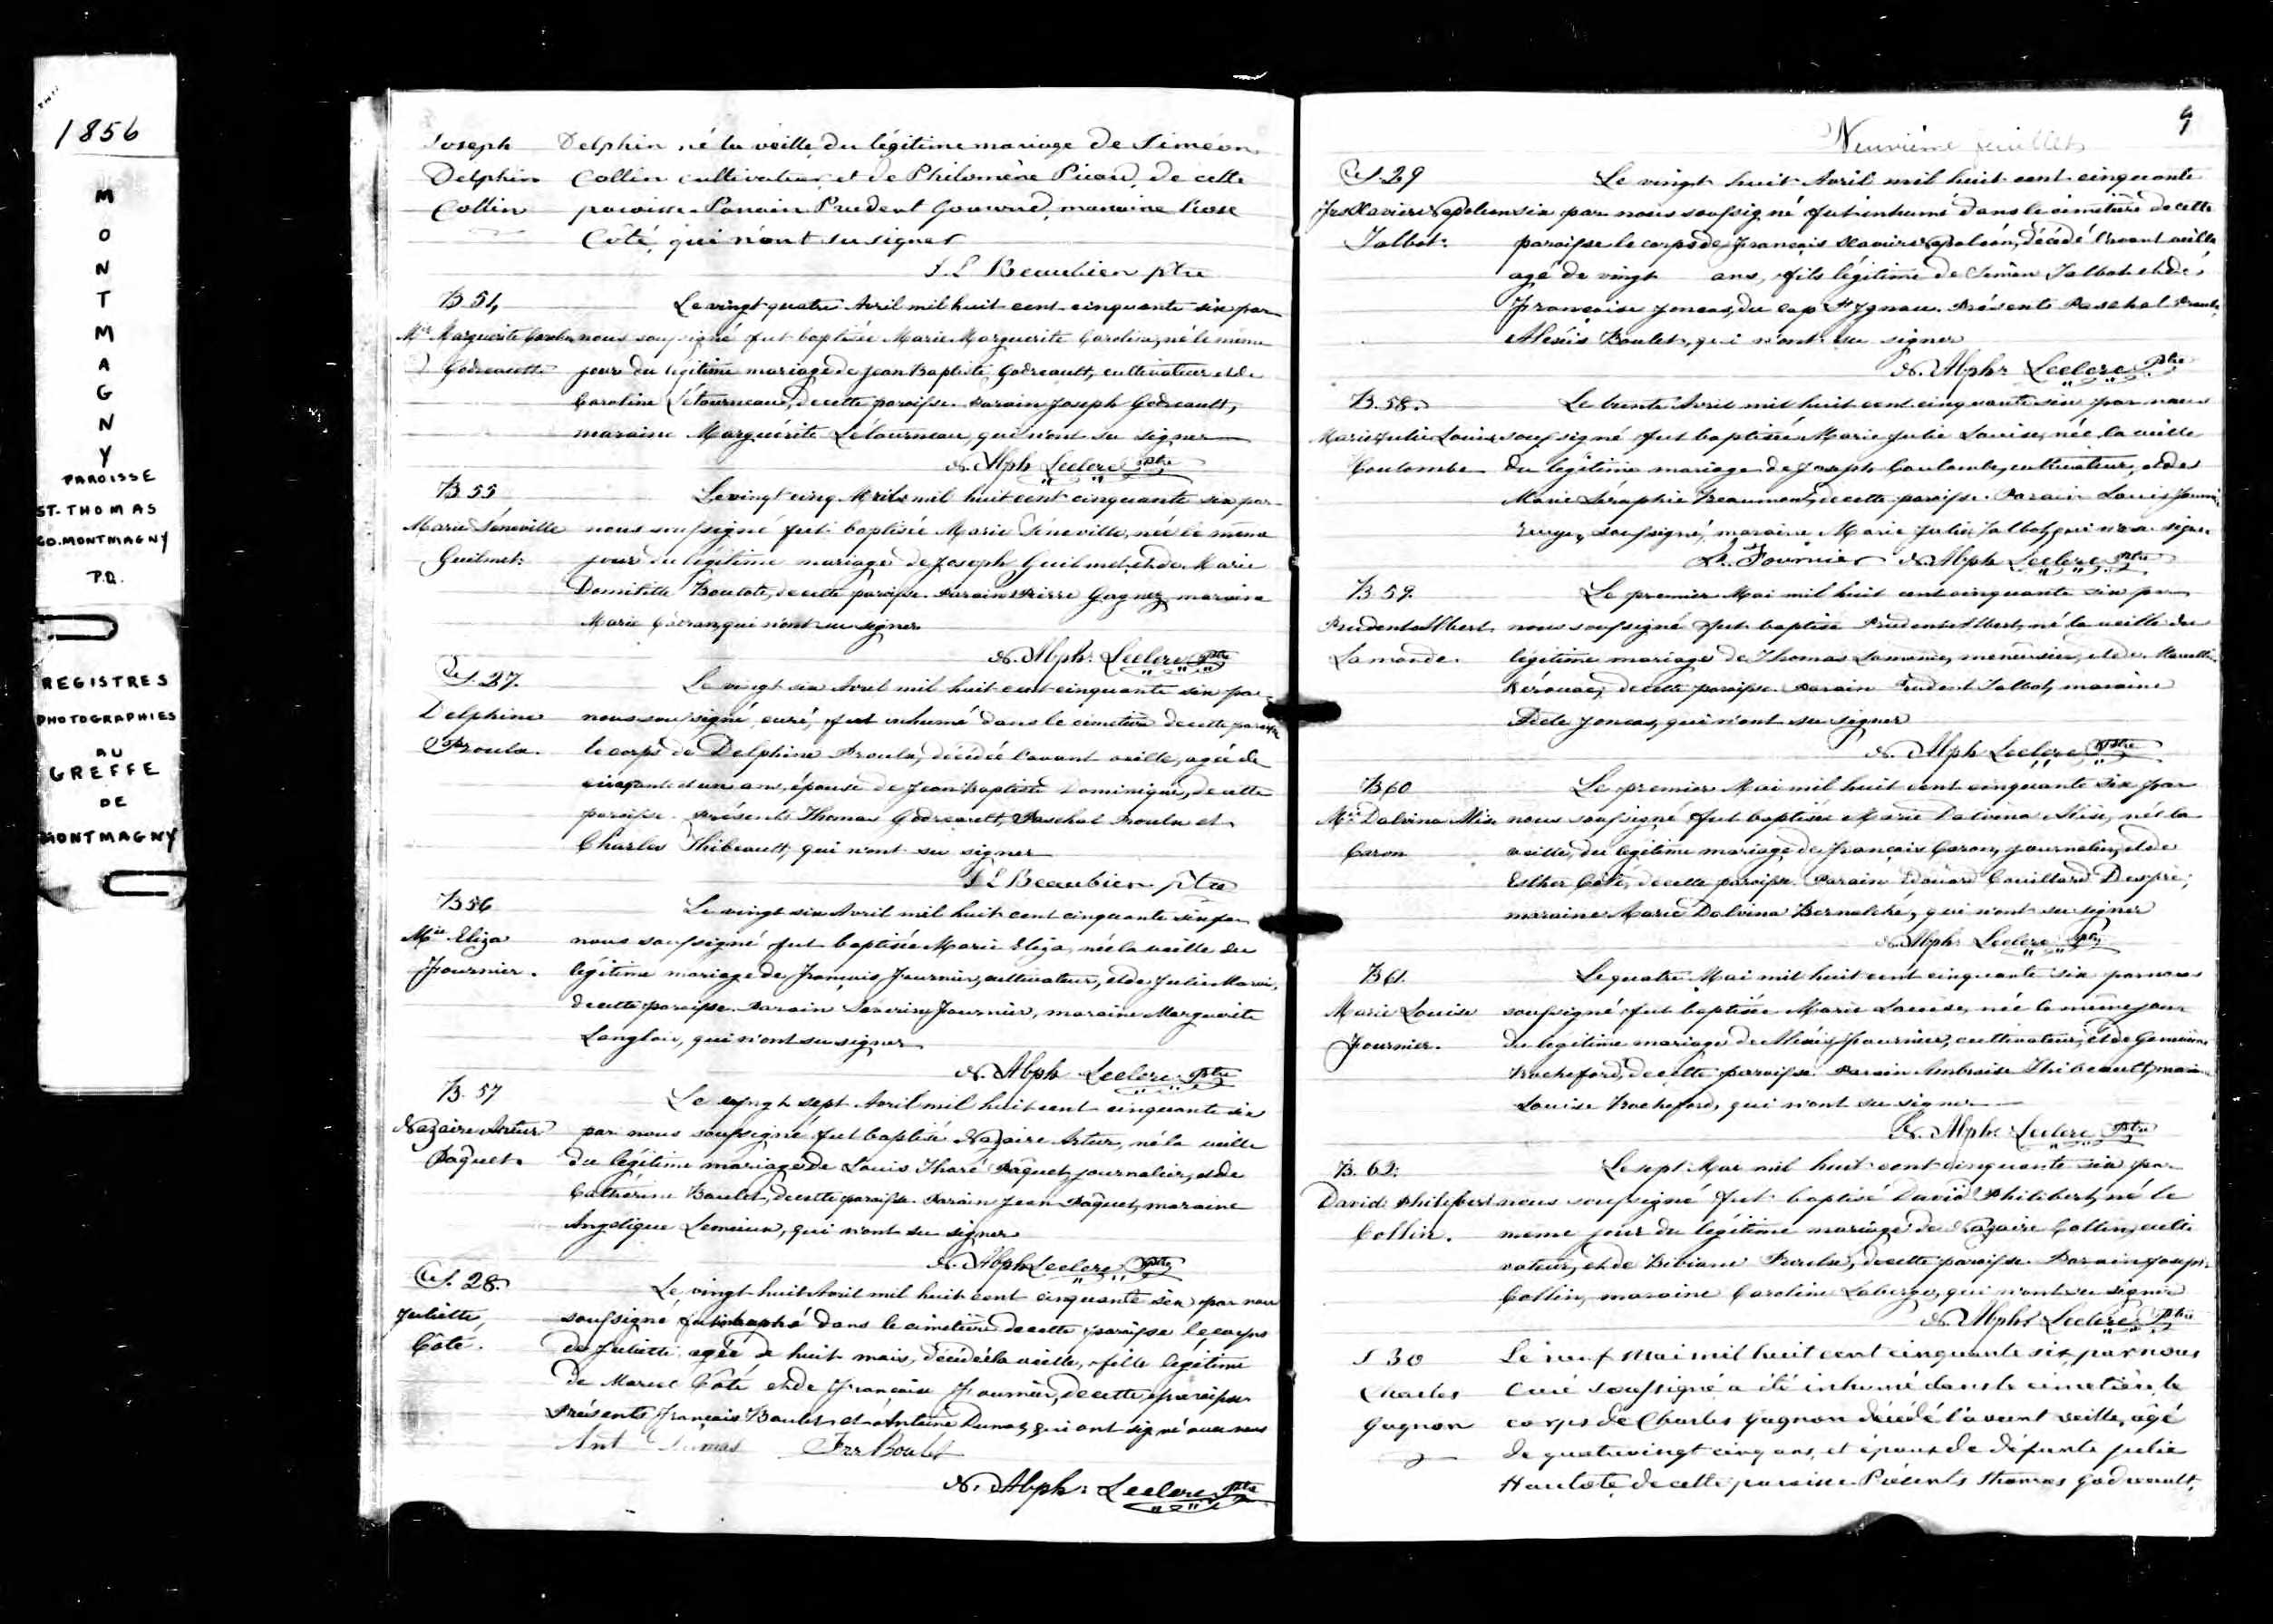 1856
MONTMAGNY
PAROISSE
ST. THOMAS
CO. MONTMAGNY
P.Q.
REGISTRES
PHOTOGRAPHIES
AU
GREFFE
DE
MONTMAGNY
Joseph Delphin né la veille du légitime mariage de Siméon
Delphin Collin cultivateur et de Philomène Picard, de cette
Collin paroisse Parrain Prudent maraine Rose
Côté, qui n'ont su signer
J. L Beaubien ptre
B 54 Le vingt quatre Avril mil huit cent cinquante six par
Mie Marguerite nous soussigné fut baptisée Marie Marguerite Caroline, né le même
Godreault jour du légitime mariage de Jean Baptiste Godreault, cultivateur et de
Caroline Létourneau, de cette paroisse. Parain Joseph Godreault,
maraine Marguérite Létourneau, qui n'ont su signer
N. Alph Leclerc Ptre
B 55 Le vingt cinq Avril mil huit cent cinquante six par
Marie nous soussigné fut baptisée Marie né le même
Guilmet jour du légitime mariage de Joseph Guilmet et de Marie
Boulet, de cette paroisse. Parain Pierre Gagnez, maraine
Marie qui n'ont su signer
N. Alph. Leclerc Ptre
S. 27. Le vingt six Avril mil huit cent cinquante six par
Delphine nous soussigné curé, fut inhumé dans le cimetière de cette paroisse
Proulx. le corps de Delphine Proulx, décédée l'avant veille, agée de
cinquante et un ans, épouse de Jean Baptiste Dominique, de cette
paroisse. Présents Thomas Godreault, Paschal Proulx et
Charles Thibeault, qui n'ont su signer
J L Beaubien ptre
B 56 Le vingt six Avril mil huit cent cinquante six par
Mie Eliza nous soussigné fut baptisée Marie Eliza, née la veille du
Fournier. légitime mariage de François Fournier, cultivateur, et de Julie
de cette paroisse. Parain Séverin Fournier, maraine Marguerite
Langlois, qui n'ont su signer
N. Alph Leclerc Ptre
B. 57 Le vingt sept Avril mil huit cent cinquante six
Nazaire Artur par nous soussigné fut baptisé Nazaire Artur, né la veille
Pâquet. du légitime mariage de Louis Pâquet, journalier, et de
Cathérine Boulet, de cette paroisse. Parain Jean Pâquet, maraine
Angelique Lemieux, qui n'ont su signer
N. Alph Leclerc Ptre
S. 28. Le vingt huit Avril mil huit cent cinquante six par nous
Juliette soussigné fut dans le cimetière de cette paroisse le corps
Côté. de Juliette agée de huit mois, décédée la veille, fille légitime
de Marcel Côté et de Françoise Fournier, de cette paroisse
Présents François Boulet et Antoine Dumas, qui ont signé avec nous
Ant Dumas Frs Boulet
N. Alph: Leclerc Ptre
9
Neuvième feuillet
S. 29 Le vingt huit Avril mil huit cent cinquante
Frs Xavier Napoleon six par nous soussigné fut inhumé dans le cimetière de cette
Talbot. paroisse le corps de François Xavier Napoléon, décédé l'avant veille
agé de vingt ans, fils légitime de Simon Talbot et de
Françoise Joncas, du cap St Ignace. Présents Paschal Proulx,
Alexis Boulet, qui n'ont su signer
N. Alph Leclerc Ptre
B. 58. Le trente Avril mil huit cent cinquante six par nous
Marie Julie Louise soussigné fut baptisée Marie Julie Louise, née la veille
Coulombe du légitime mariage de Joseph Coulombe, cultivateur, et de
Marie Séraphie Beaumont, de cette paroisse. Parain Louis Fournier
soussigné, maraine Marie Julie Talbot, qui n'a su signer
Ls. Fournier N. Alph Leclerc Ptre
B. 59. Le premier Mai mil huit cent cinquante six par
Prudent Albert nous soussigné fut baptisé Prudent Albert, né la veille du
Lamonde. légitime mariage de Thomas Lamonde, menuisier, et de
Kérouac, de cette paroisse. Parain Prudent Talbot, maraine
Adèle Joncas, qui n'ont su signer
N. Alph Leclerc Ptre
B 60 Le premier Mai mil huit cent cinquante six par
Mie Dalvina nous soussigné fut baptisée Marie Dalvina née la
Caron veille, du légitime mariage de François Caron, journalier, et de
Esther Côté, de cette paroisse. Parain Edouard Couillard Després,
maraine Marie Dalvina Bernatché, qui n'ont su signer
N. Alph. Leclerc Ptre
B 61. Le quatre Mai mil huit cent cinquante six par nous
Marie Louise soussigné fut baptisée Marie Louise, née le même jour
Fournier. du légitime mariage de Alexis Fournier, cultivateur, et de
Rocheford, de cette paroisse. Parain Ambroise Thibeault, maraine
Louise Rocheford, qui n'ont su signer
N. Alph. Leclerc Ptre
B. 62. Le sept Mai mil huit cent cinquante six par
David Philibert nous soussigné fut baptisé David Philibert, né le
Collin. meme jour du légitime mariage de Nazaire Collin, culti
vateur, et de Bibiane de cette paroisse. Parain Joseph
Collin, maraine Caroline Laberge, qui n'ont su signer
N. Alph. Leclerc Ptre
S 30 Le neuf Mai mil huit cent cinquante six, par nous
Charles Curé soussigné a été inhumé dans le cimetière, le
Gagnon corps de Charles Gagnon décédé l'avant veille, agé
de quatrevingt cinq ans, et époux de défunte Julie
de cette paroisse Présents Thomas Godreault,